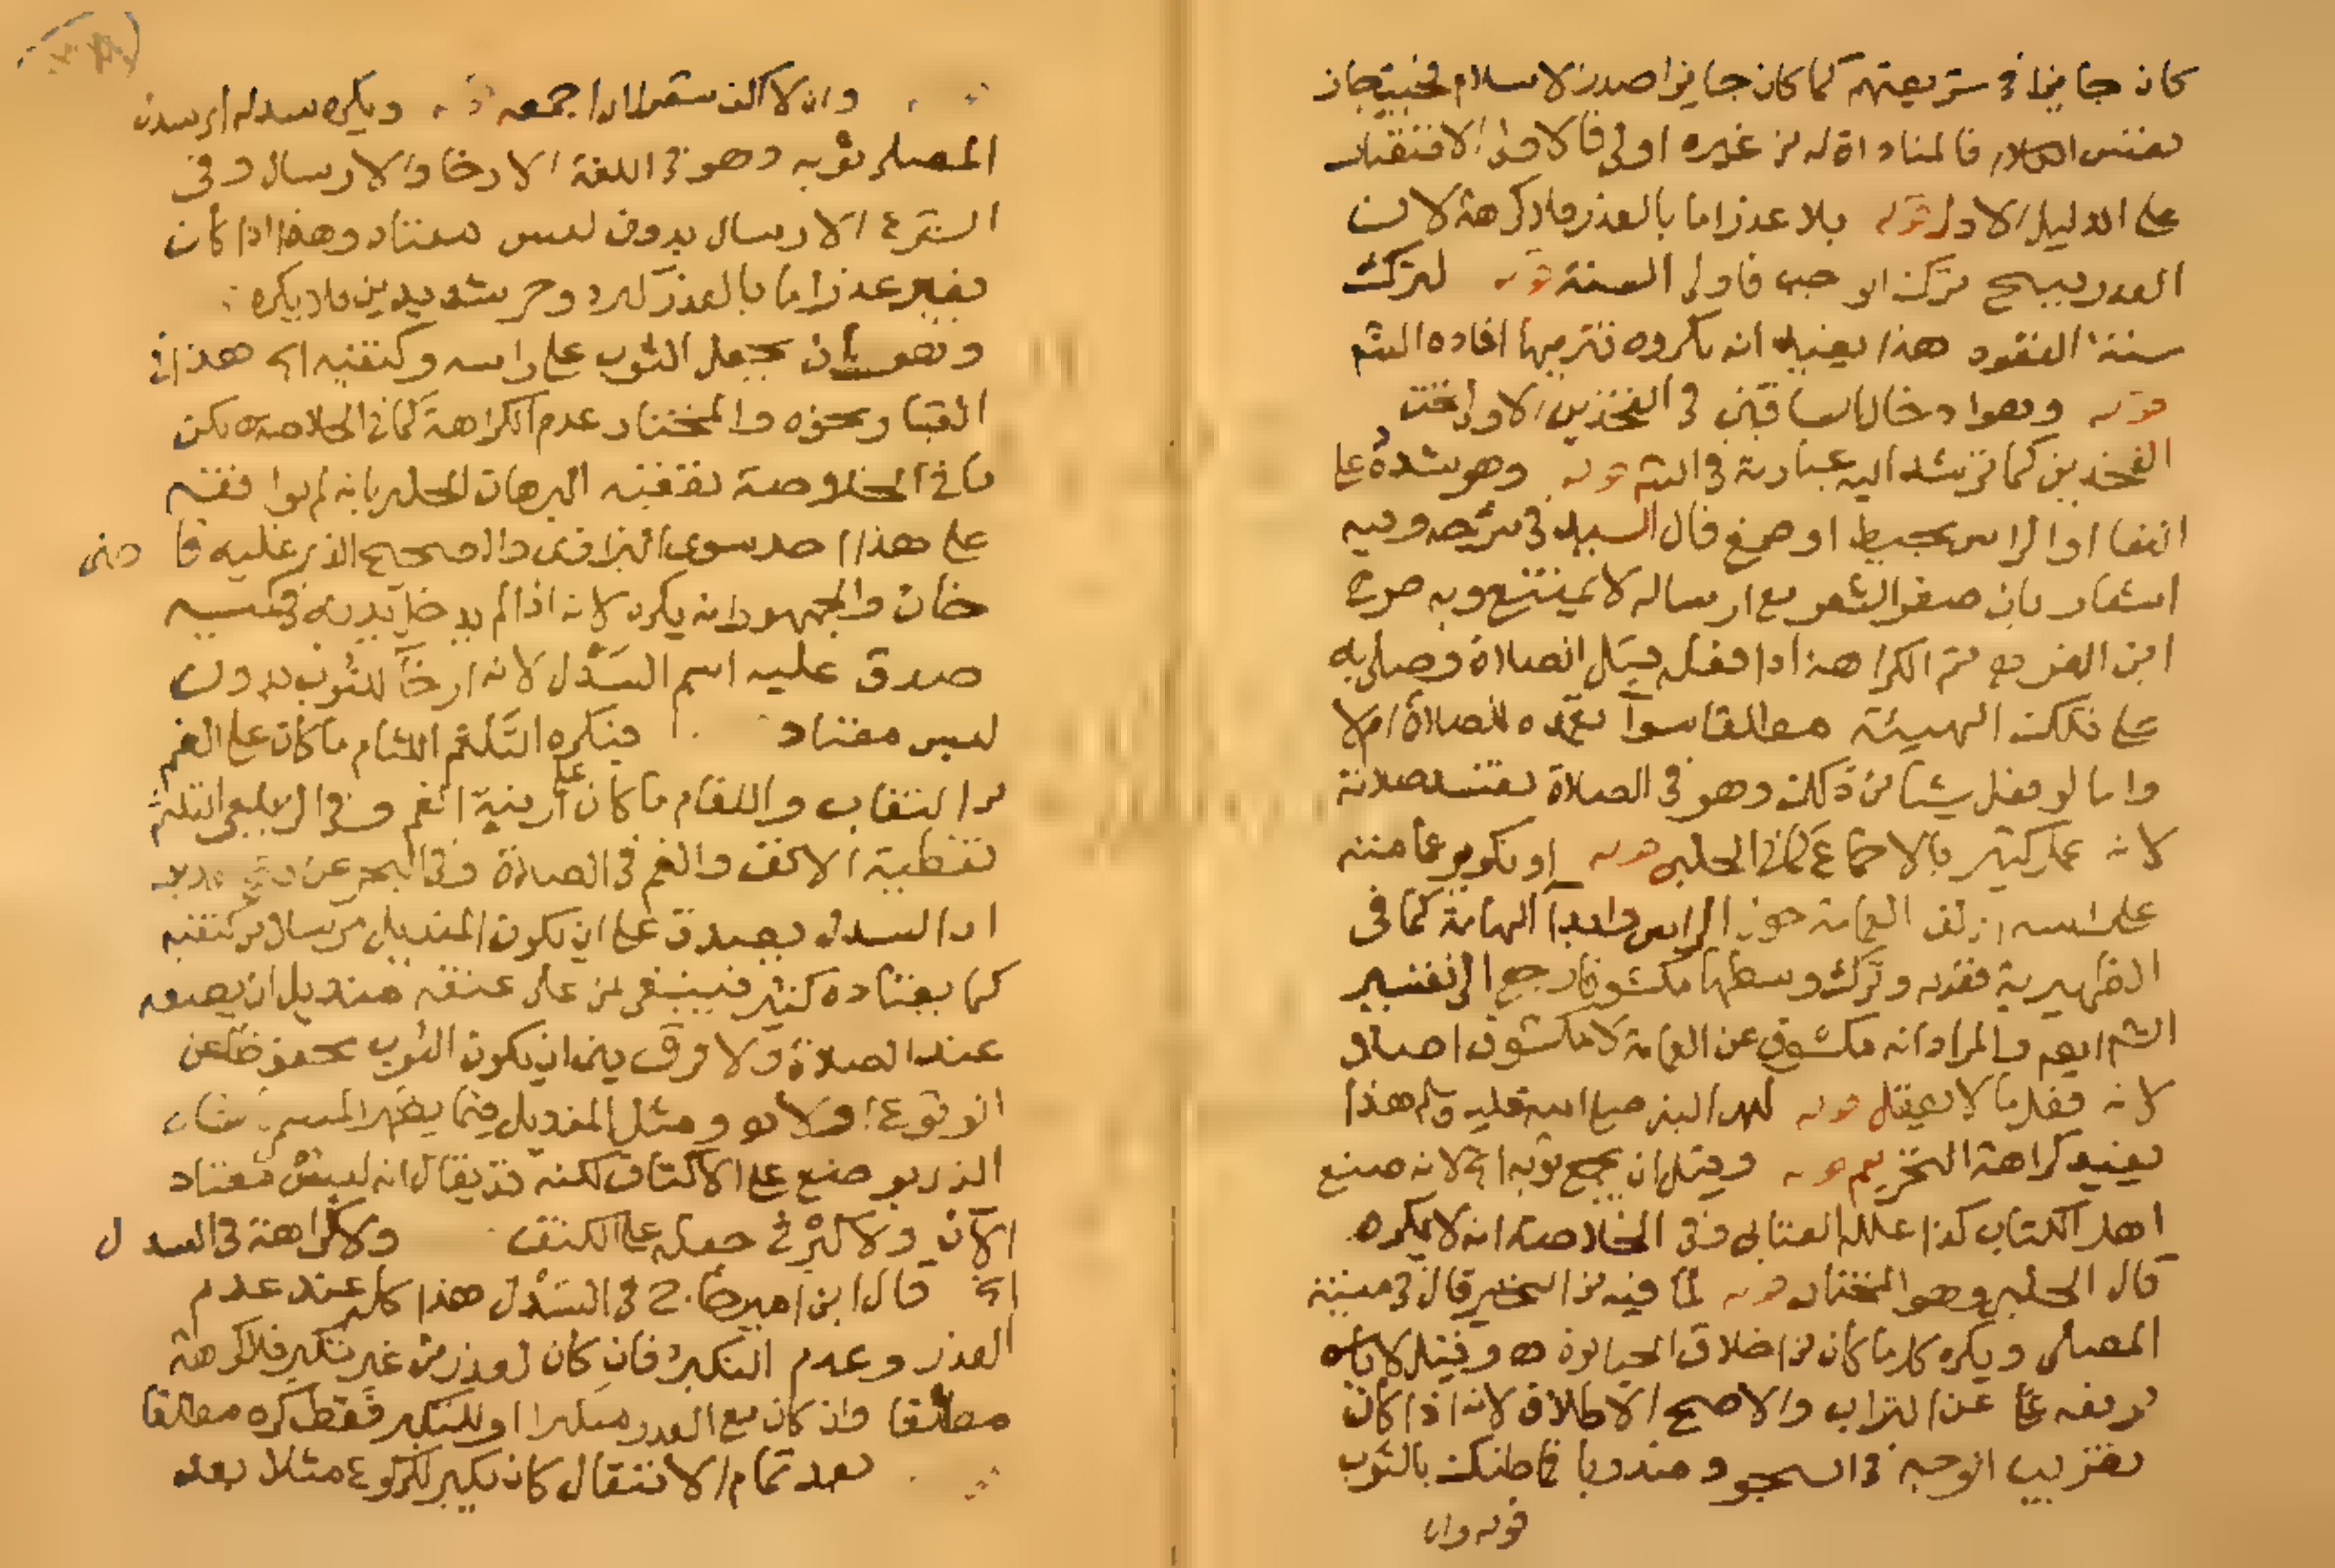 كان جايزا في شريعتهم كما كان جايزا صدر الاسلام فحيث جاز
بنفس السلام فالمناداة له من غيره اولى فالاولى الاقتصار
على الدليل الاول قوله بلا عذر اما بالعذر فلا كراهة لان
العذر يبيح ترك الواجب فاولى السنة قوله لترك
سنة القعود هذا يفيد انه مكروه تنزيها افاده الشم
قوله وهو ادخال الساقين في الفخذين الاولى تحت
الفخذين كما ترشد اليه عبارته في الشم قوله وهو شده على
القفا او الراس بخيط او صمغ قال السيد في شرحه وفيه
اشعار بان ضفر الشعر مع ارساله لا يمتنع وبه صرح
ابن العز ثم الكراهة اذا فعله قبل الصلاة وصلى به
على تلك الهيئة مطلقا سوآ تعمده للصلاة ام لا
واما لو فعل شيا من ذلك وهو في الصلاة تفسد صلاته
لانه عمل كثير بالاجماع كما في الحلبي قوله او تكوير عمامته
على راسه لف العمامة حول الراس وابدآ الهامة كما في
الظهيرية فقوله وترك وسطها مكشوفا راجع الى تفسير
الشم ايضا والمراد انه مكشوف عن العمامة لا مكشوف اصلا
لانه فعل ما لا يعقل قوله لنهي النبي صلى الله عليه وسلم هذا
يفيد كراهة التحريم قوله وقيل ان يجمع ثوبه اي لانه صنيع
اهل الكتاب كذا علله العتابي وفي الخلاصة انه لا يكره
قال الحلبي وهو المختار قوله لما فيه من التجبر قال في منية
المصلى ويكره كل ما كان من اخلاق الجبابرة وقيل لا باس
برفعه عن التراب والاصح الاطلاق لانه اذا كان
تتريب الوجه في السجود مندوبا فما ظنك بالثوب
قوله وان
وان لا قوله ويكره سدله اي سدل
المصلى ثوبه وهو في اللغة الارخا والارسال وفي
الشرع الارسال بدون لبس معتاد وهذا اذا كان
بغير عذر اما بالعذر كبرد وحر شديدين فلا يكره
وهو بان يجعل الثوب على راسه وكتفيه اي هذا في
القبا ونحوه والمختار عدم الكراهة كما في الخلاصة لكن
ما في الخلاصة تعقبه البرهان الحلبي بانه لم يوافقه
على هذا احد سوى البزازي والصحيح الذي عليه قاضى
خان والجمهور انه يكره لانه اذا لم يدخل يديه في كميه
صدق عليه اسم السَدْل لانه ارخآ للثوب بدون
لبس معتاد فيكره التلثم اللثام ما كان على الفم
من النقاب واللفام ما كان على ارنبة الفم وفي الزيلعي التلثم
تغطية الانف والفم في الصلاة وفي البحر عن
ان السدل يصدق على ان يكون المنديل مرسلا من كتفيه
كما يعتاده كثير فينبغي لمن على عنقه منديل ان يضعه
عند الصلاة ولا فرق بين ان يكون الثوب محفوظا عن
الوقوع اولا ومثل المنديل فيما يظهر المسمى
الذي يوضع على الاكتاف لكنه قد يقال انه لبس معتاد
الآن ولا اثر في جعله على الكتف ولا كراهة في السدل
اي قال ابن امير حاج في السَدْل هذا كله عند عدم
العذر وعدم التكبر فان كان لعذر من غير تكبر فلا كراهة
مطلقا وان كان مع العذر متكبرا او للتكبر فقط كره مطلقا
بعد تمام الانتقال كان يكبر للركوع مثلا بعد